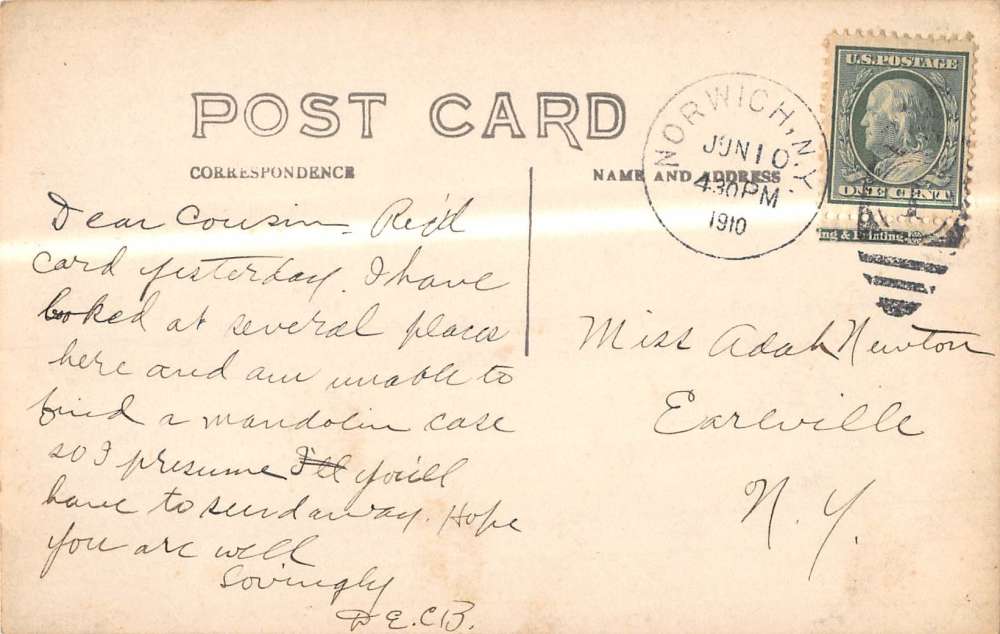 POST CARD
CORRESPONDENCE
NAME AND ADDRESS
NORWICH, N.Y.
JUN 10
4.30 PM
1910
U.S. POSTAGE
ONE CENT
ng & Printing.
Dear Cousin – Rec'd
card yesterday. I have
looked at several places
here and am unable to
find a mandolin case
so I presume I'll you'll
have to send away. Hope
you are well
Lovingly
D.E.C.B.
Miss Adah Newton
Earlville
N.Y.